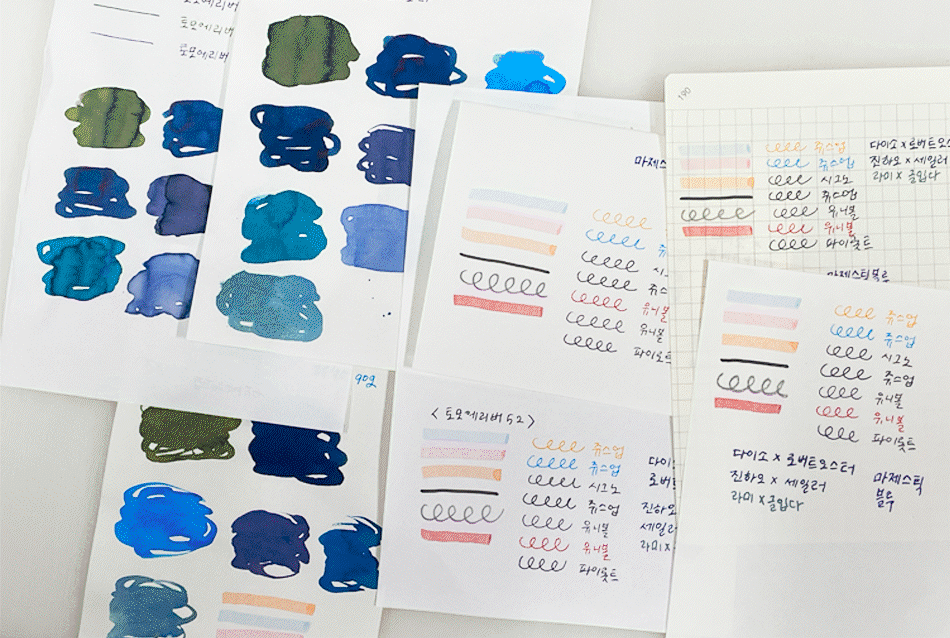 토모에리버
토모에리버
토모에리버
90g
마제스
쥬
시그
쥬스
유니볼
유니볼
파이롯
<토모에리버52>
쥬스업
쥬스업
시그노
쥬스업
유니볼
유니볼
파이롯트
다이
로버
진하오
세일러
라미x
190
쥬스업
쥬스업
시그노
쥬스업
유니볼
유니볼
파이롯트
다이소x로버트오스
진하오x세일러
라미x글입다
마제스틱블루
쥬스업
쥬스업
시그노
쥬스업
유니볼
유니볼
파이롯트
다이소x로버트오스터
진하오x세일러
라미x글입다
마제스틱
블루